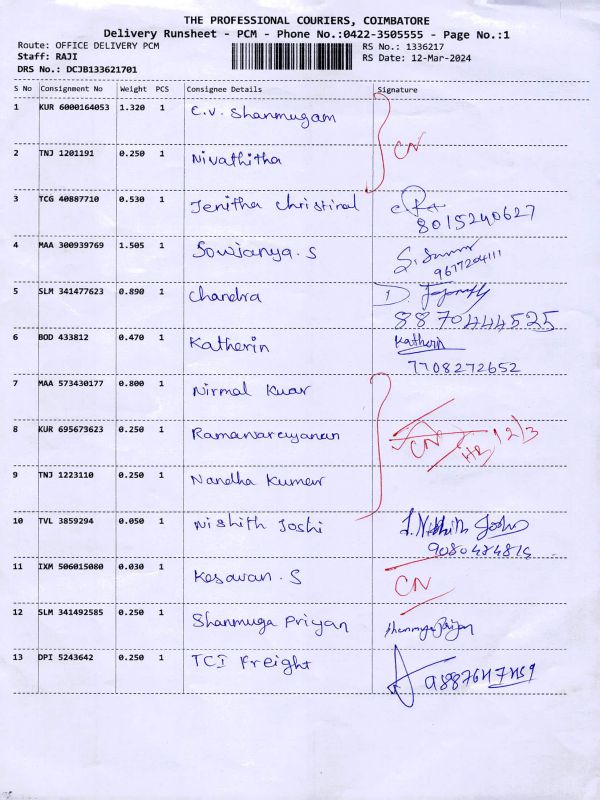 THE PROFESSIONAL COURIERS, COIMBATORE
Delivery Runsheet - PCM - Phone No.:0422-3505555 - Page No.:1
Route: OFFICE DELIVERY PCM RS No.: 1336217
Staff: RAJI RS Date: 12-Mar-2024
DRS No.: DCJB133621701
S No Consignment No Weight PCS Consignee Details Signature
1 KUR 6000164053 1.320 1 C.V. Shanmugam
CN
2 TNJ 1201191 0.250 1 Nivathitha
3 TCG 40887710 0.530 1 Jenitha Christinal
8015240627
4 MAA 300939769 1.505 1 Sowjanya. S
9677204111
5 SLM 341477623 0.890 1 Chandra
8870444525
6 BOD 433812 0.470 1 Katherin Katherin
7708272652
7 MAA 573430177 0.800 1 Nirmal Kuar
8 KUR 695673623 0.250 1 Ramanarayanan CN 12/3
9 TNJ 1223110 0.250 1 Nandha Kumar
10 TVL 3859294 0.050 1 Nishith Joshi J. Nishith Joshi
11 IXM 506015080 0.030 1 Kesavan. S CN
12 SLM 341492585 0.250 1 Shanmuga Priyan Shanmuga Priyan
13 DPI 5243642 0.250 1 TCI Freight